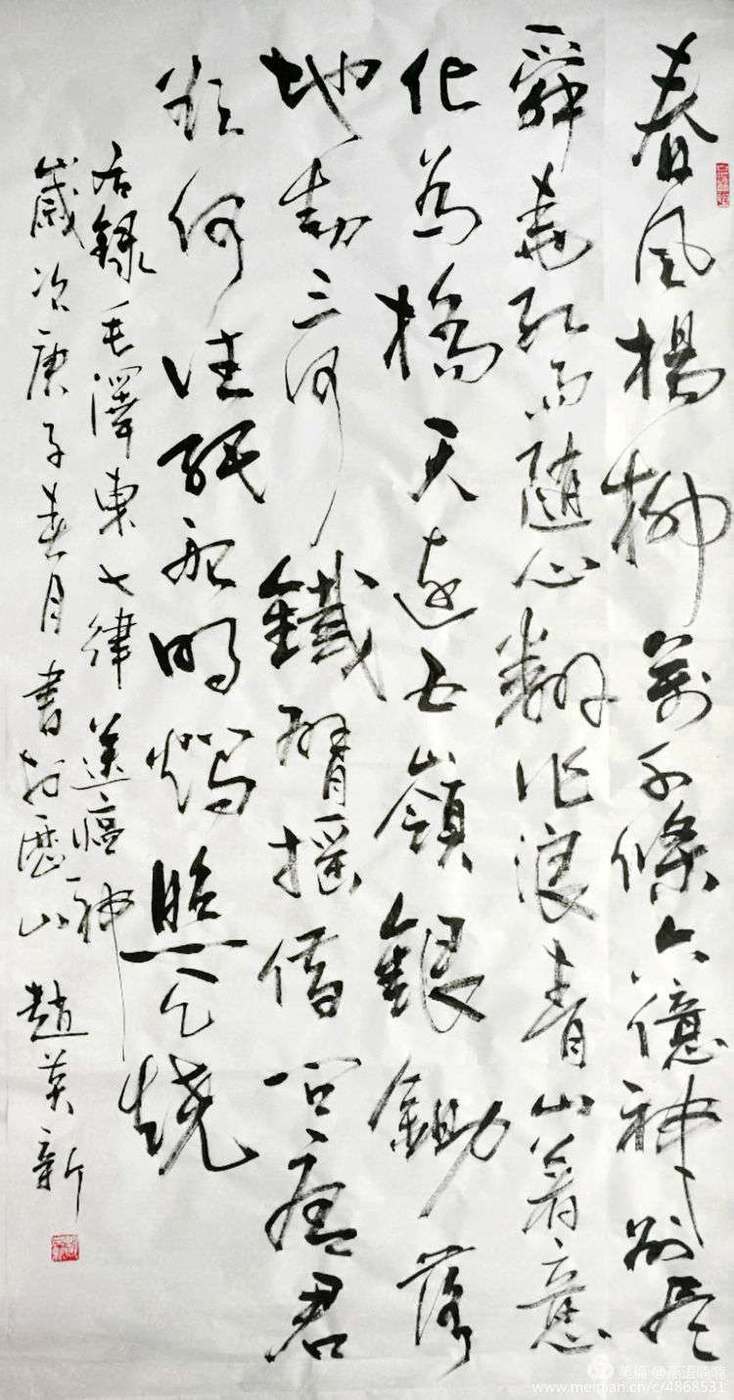 春风楊柳萬千條六億神州尽
舜堯紅雨隨心翻作浪青山着意
化為橋天連五嶺銀鋤落
地動三河鐵臂搖借问瘟君
欲何往紙船明燭照天燒
右錄毛澤東七律送瘟神
歲次庚子春月書於歷山 趙英新
美篇
www.meipian.cn/c/4868531